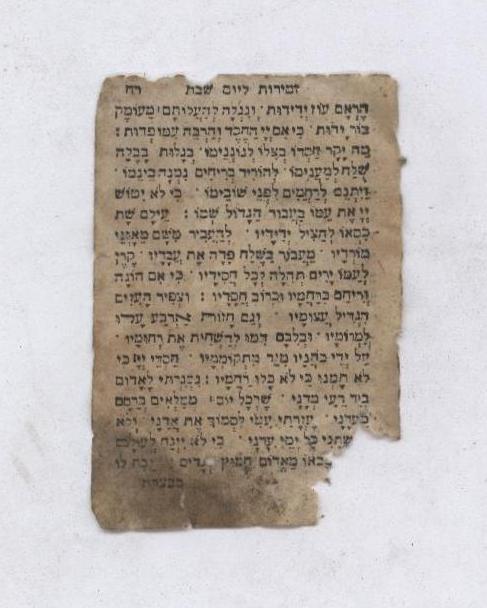 זמירות ליום שבת רח
הֶרְאָם עוֹז יְדִידוּת · וְנִגְלָה לְהַעֲלוֹתָם · מֵעוֹמֶק
בּוֹר וָדוּת · כִּי אִם יְיָ הַחֶסֶד וְהַרְבֵּה עִמּוֹ פְדוּת :
מַה יָּקָר חַסְדּוֹ בְּצִלּוֹ לְגוֹנְנֵימוֹ · בְּגָלוּת בָּבֶלָה
שֻׁלַּח לְמַעֲנֵימוֹ · לְהוֹרִיד בָּרִיחִים נִמְנָה בֵינֵימוֹ ·
וַיִּתְּנֵם לְרַחֲמִים לִפְנֵי שׁוֹבֵימוֹ · כִּי לֹא יִטּוֹשׁ
יְיָ אֶת עַמּוֹ בַּעֲבוּר הַגָּדוֹל שְׁמוֹ : עֵילָם שָׁת
כִּסְאוֹ לְהַצִּיל יְדִידָיו · לְהַעֲבִיר מִשָּׁם מָאֻזְּנֵי
מוֹרְדָיו · מֵעֲבוֹר בַּשֶּׁלַח פָּדָה אֶת עֲבָדָיו · קֶרֶן
לְעַמּוֹ יָרִים תְּהִלָּה לְכָל חֲסִידָיו · כִּי אִם הוֹגָה
וְרִיחַם כְּרַחֲמָיו וּכְרוֹב חֲסָדָיו : וּצְפִיר הָעִזִּים
הִגְדִּיל עֲצוּמָיו · וְגַם חָזוּת אַרְבַּע עָלוּ
לִמְרוֹמָיו · וּבְלִבָּם דִּמּוּ לְהַשְׁחִית אֶת רְחוּמָיו ·
עַל יְדֵי כֹּהֲנָיו מִגֵּר מִתְקוֹמְמָיו · חַסְדֵי יְיָ כִּי
לֹא תָמְנוּ כִּי לֹא כָלוּ רַחֲמָיו : נִסְגַּרְתִּי לֶאֱדוֹם
בְּיַד רֵעַי מְדָנַי · שֶׁבְּכָל יוֹם · מְמַלְאִים כְּרֵסָם
מֵעֲדָנַי · עֶזְרָתִי עִמִּי לִסְמוֹךְ אֶת אֲדָנַי · וְלֹא
כָּל יְמֵי עִדָנַי · כִּי לֹא יִזְנַח לְעוֹלָם
מֵאֱדוֹם חֲמוּץ בְּגָדִים · זֶבַח לוֹ
בבצרה